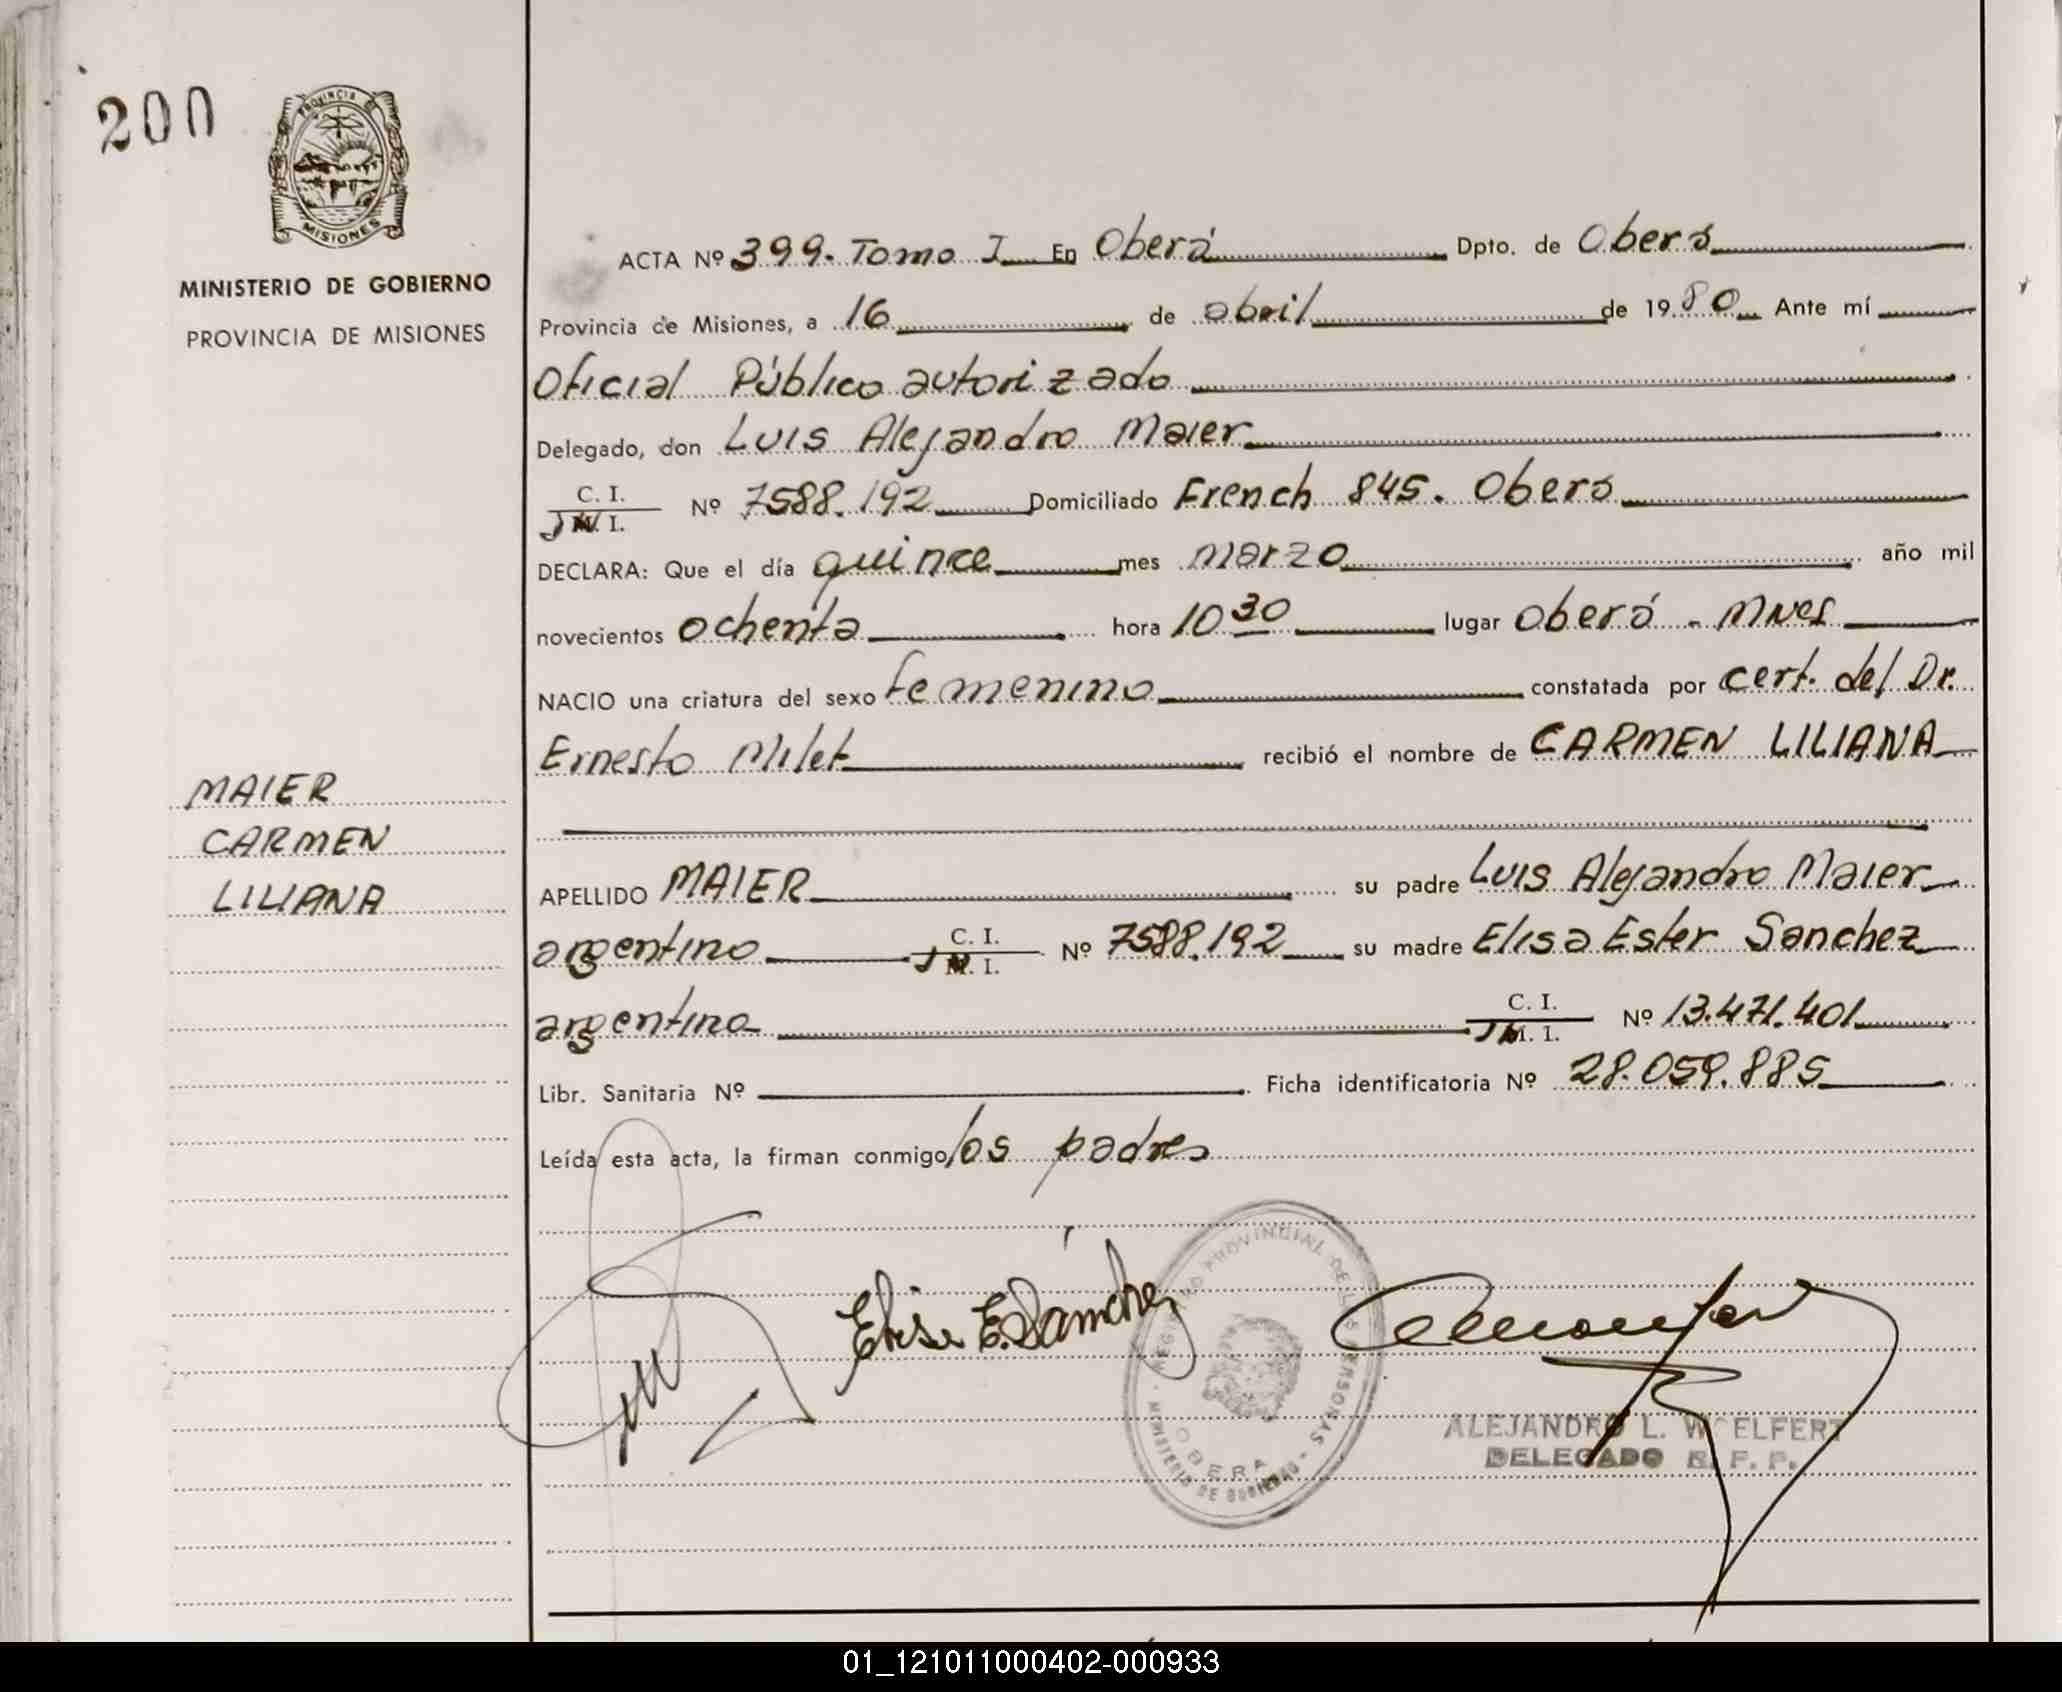 200
PROVINCIA DE
MISIONES
MINISTERIO DE GOBIERNO
PROVINCIA DE MISIONES
MAIER
CARMEN
LILIANA
ACTA Nº 399. Tomo I En Oberá Dpto. de Oberá
Provincia de Misiones, a 16 de abril de 1980 Ante mí
Oficial Público autorizado
Delegado, don Luis Alejandro Maier
C. I.
M. I. Nº 7588.192 Domiciliado French 845. Oberá
DECLARA: Que el día quince mes marzo año mil
novecientos ochenta hora 10 30 lugar Oberá - Mnes
NACIO una criatura del sexo femenino constatada por cert. del Dr.
Ernesto Milet recibió el nombre de CARMEN LILIANA
APELLIDO MAIER su padre Luis Alejandro Maier
argentino C. I. M. I. Nº 7588.192 su madre Elisa Ester Sanchez
argentina C. I. M. I. Nº 13.471.401
Libr. Sanitaria Nº Ficha identificatoria Nº 28.059.885
Leída esta acta, la firman conmigo los padres
Elisa E. Sánchez
REGISTRO PROVINCIAL DE LAS PERSONAS
OBERA
MINISTERIO DE GOBIERNO
ALEJANDRO L. WOELFERT
DELEGADO R. P. P.
01_121011000402-000933